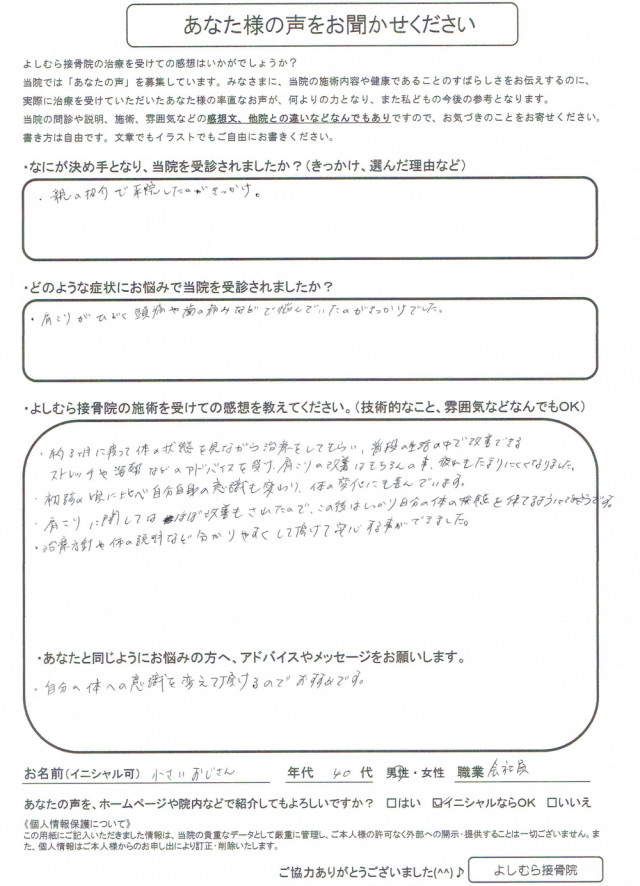 あなた様の声をお聞かせください
よしむら接骨院の治療を受けての感想はいかがでしょうか？
当院では「あなたの声」を募集しています。みなさまに、当院の施術内容や健康であることのすばらしさをお伝えするのに、
実際に治療を受けていただいたあなた様の率直なお声が、何よりの力となり、また私どもの今後の参考となります。
当院の問診や説明、施術、雰囲気などの感想文、他院との違いなどなんでもありですので、お気づきのことをお寄せください。
書き方は自由です。文章でもイラストでもご自由にお書きください。
・なにが決め手となり、当院を受診されましたか？（きっかけ、選んだ理由など）
・親の紹介で来院したのがきっかけ。
・どのような症状にお悩みで当院を受診されましたか？
・肩こりがひどく頭痛や歯の痛みなどで悩んでいたのがきっかけでした。
・よしむら接骨院の施術を受けての感想を教えてください。（技術的なこと、雰囲気などなんでもOK）
・約3ヶ月に渡って体の状態を見ながら治療をしてもらい、普段の生活の中で改善できる
ストレッチや姿勢などのアドバイスを受け、肩こりの改善はもちろんの事、疲れもたまりにくくなりました。
・初診の頃に比べ自分自身の意識も変わり、体の変化にも喜んでいます。
・肩こりに関してはほぼ改善もされたので、この後はしっかり自分の体の状態を保てるように
・治療方針や体の説明など分かりやすくして頂けて安心する事ができました。
・あなたと同じようにお悩みの方へ、アドバイスやメッセージをお願いします。
・自分の体への意識を変えて頂けるのでおすすめです。
お名前（イニシャル可） 小さいおじさん 年代 40 代 男性・女性 職業 会社員
あなたの声を、ホームページや院内などで紹介してもよろしいですか？ □はい ☑イニシャルならOK □いいえ
《個人情報保護について》
この用紙にご記入いただきました情報は、当院の貴重なデータとして厳重に管理し、ご本人様の許可なく外部への開示・提供することは一切ございません。ま
た、個人情報はご本人様からのお申し出により訂正・削除いたします。
ご協力ありがとうございました(^^)♪ よしむら接骨院